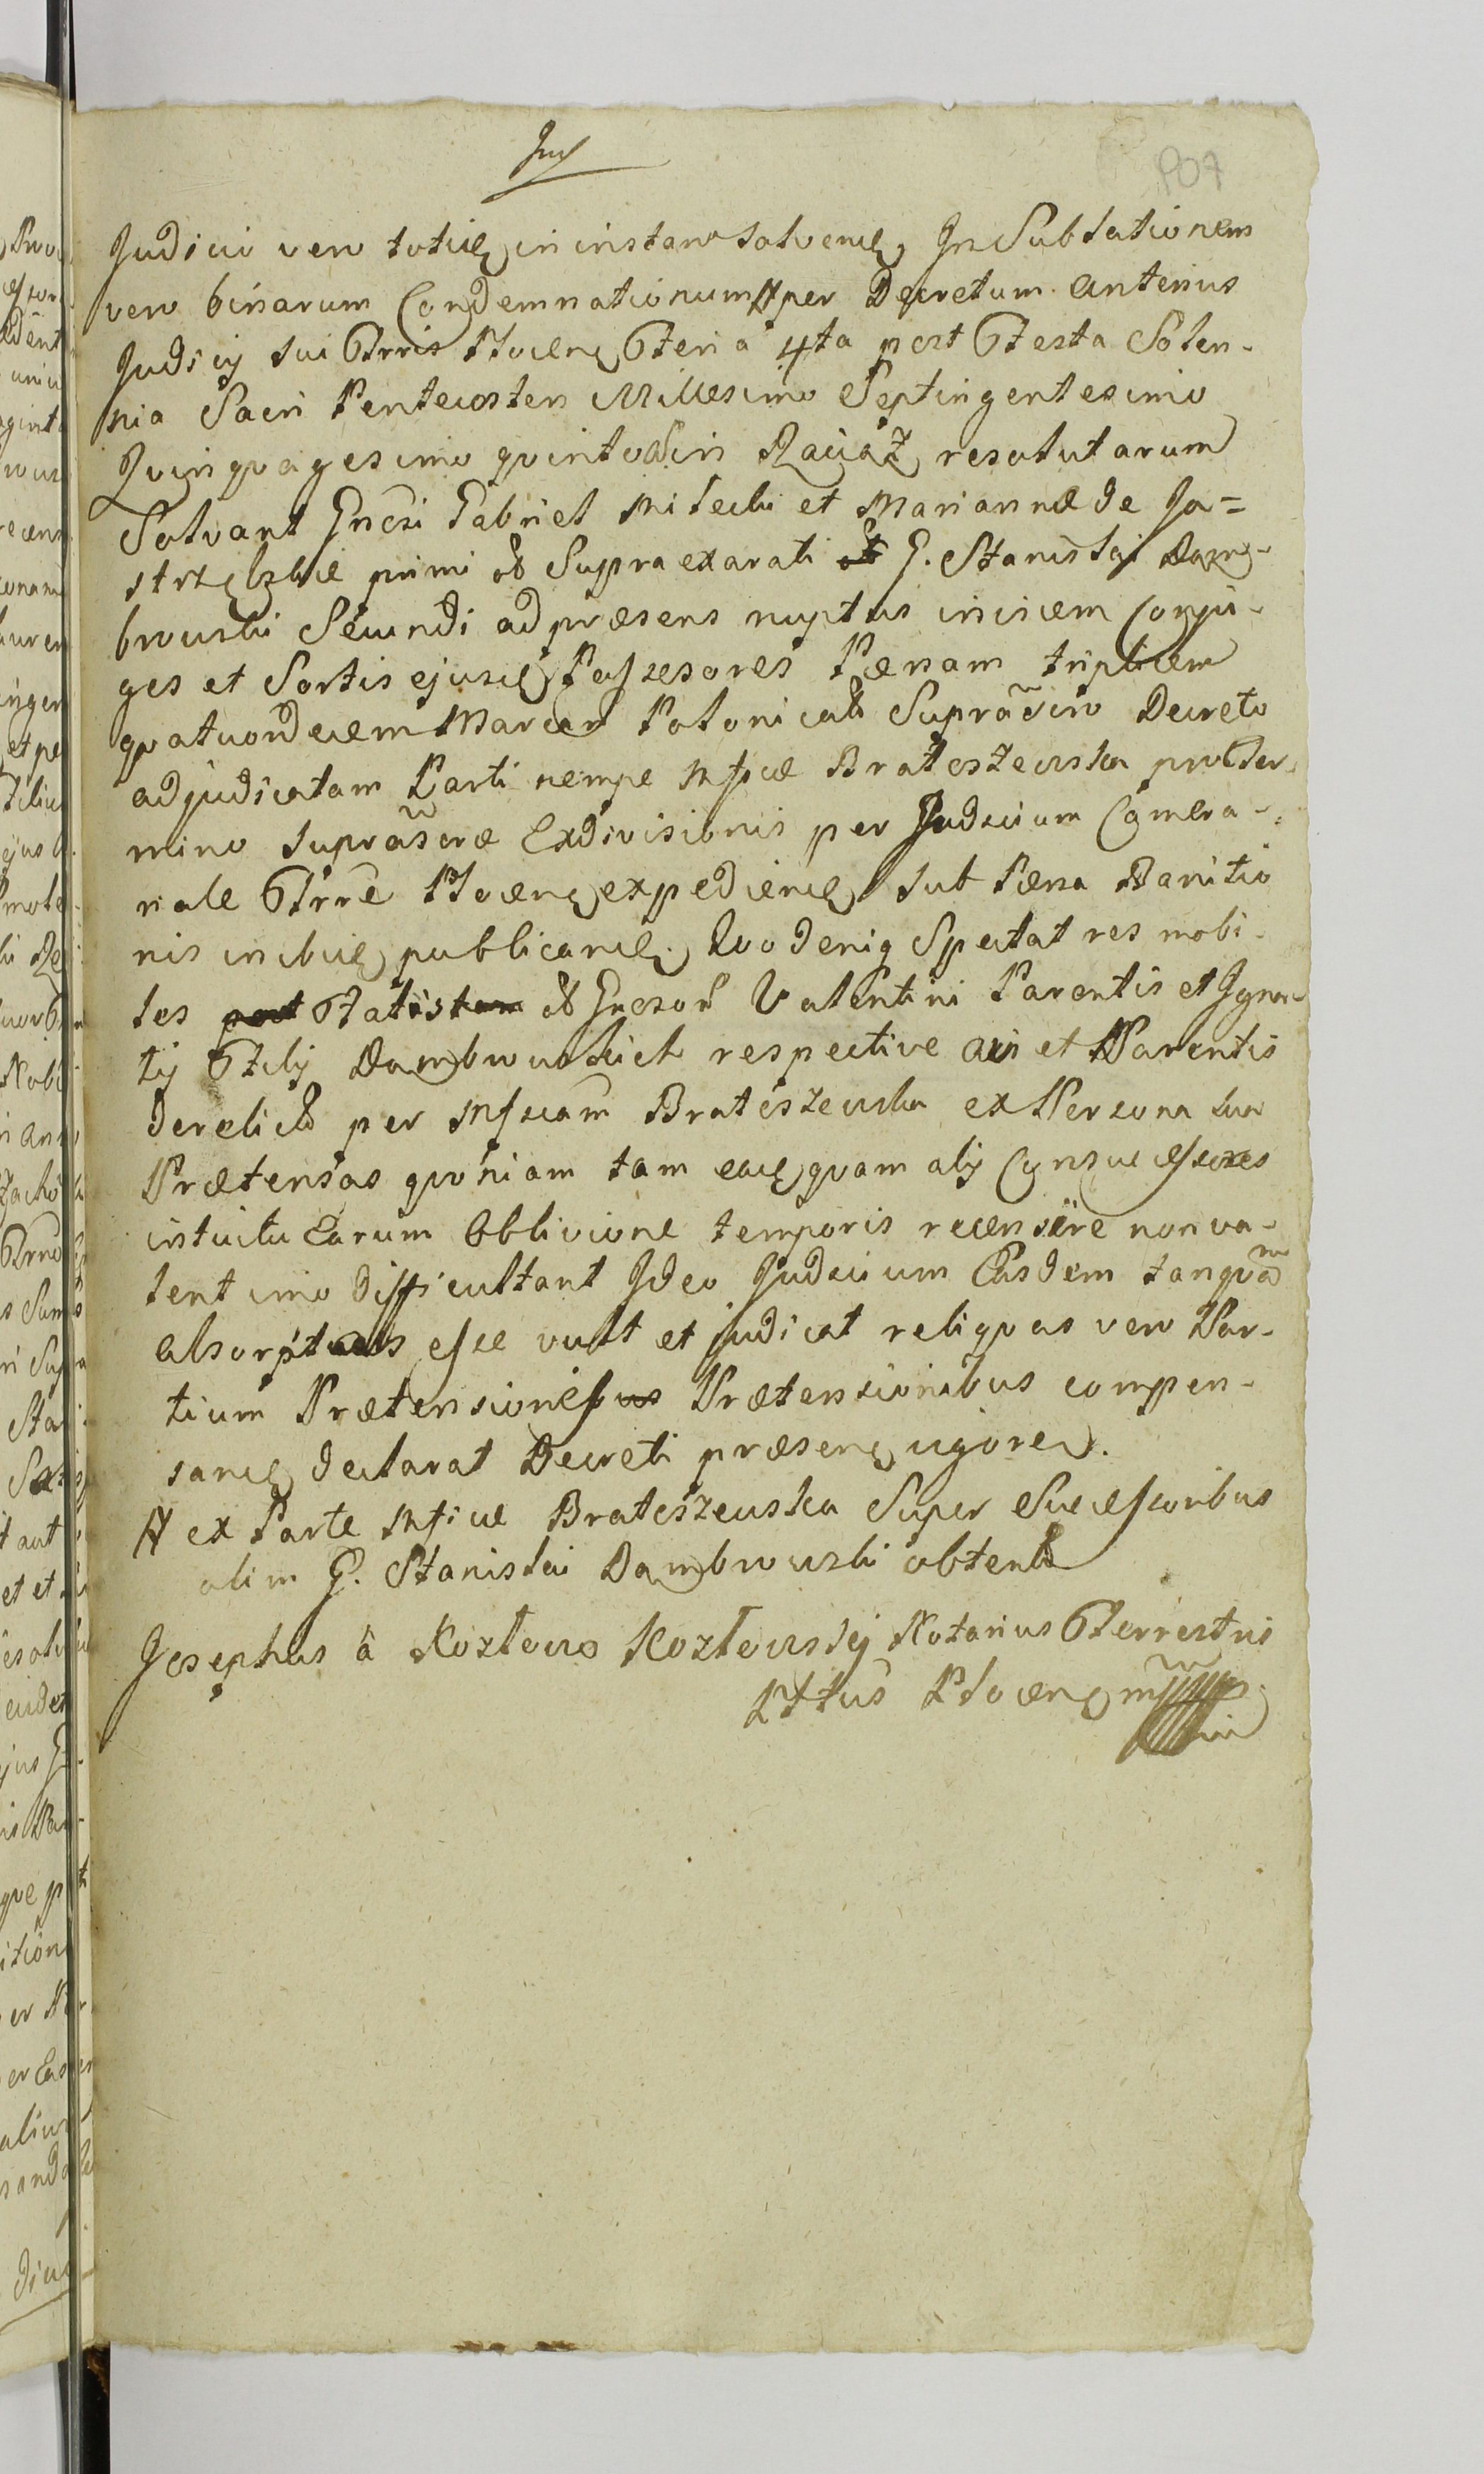 Judicio vero totidē in instanti solvendē. In Sublationem
vero binarum Condemnationum # per Decretum Anterius
Judicij sui Trris Plocenē Feria 4ta post Festa Solen-
nia Sacri Pentecostes Millesimo Septingentesimo
Quinquagesimo quinto in Raciąż resolutarum
Solvant Gnosi Gabriel Milecki et Marianna de Ja=
strzębskie primi et Supraexarati G. Stanislai Damb-
browski Secundi ad præsens nuptus invicem Conju-
ges et Sortis ejusdē Possesores Pœnam triplicem
quatuordecem Marcar Polonicalt Suprascrō Decreto
adjudicatam Parti nempe Mfcæ Brateszewska pro Ter-
mino suprascræ Exdivisionis per Judicium Camera-
rale Trre Plocenē expediendē sub Pœna Baniitio
nis in ibidē publicandē. Quo deniq Spectat res mobi-
les post Fatis et Gnesor Valentini Parentis et Igna-
tij Filij Dambrowskich respective avi et Parentis
derelict per Mfscam Brateszewska ex Persona sua
Prætensas quoniam tam eadē quam alij Consuccessores
intuitu Earum Oblivione temporis recensere non va-
lent imo difficultant Ideo Judicium Easdem tanqua
absorptas esse vult et judicat reliquas vero Par-
tium Prætensiones Prætensionibus compen-
sandē declarat Decreti præsenē vigore.
# ex Parte Mficæ Brateszewska Super Successoribus
olim G. Stanislai Dambrowski obtent
Josephus à Kozłowo Kozłowskij Notarius Terrestris
Pttus Plocenē mpp